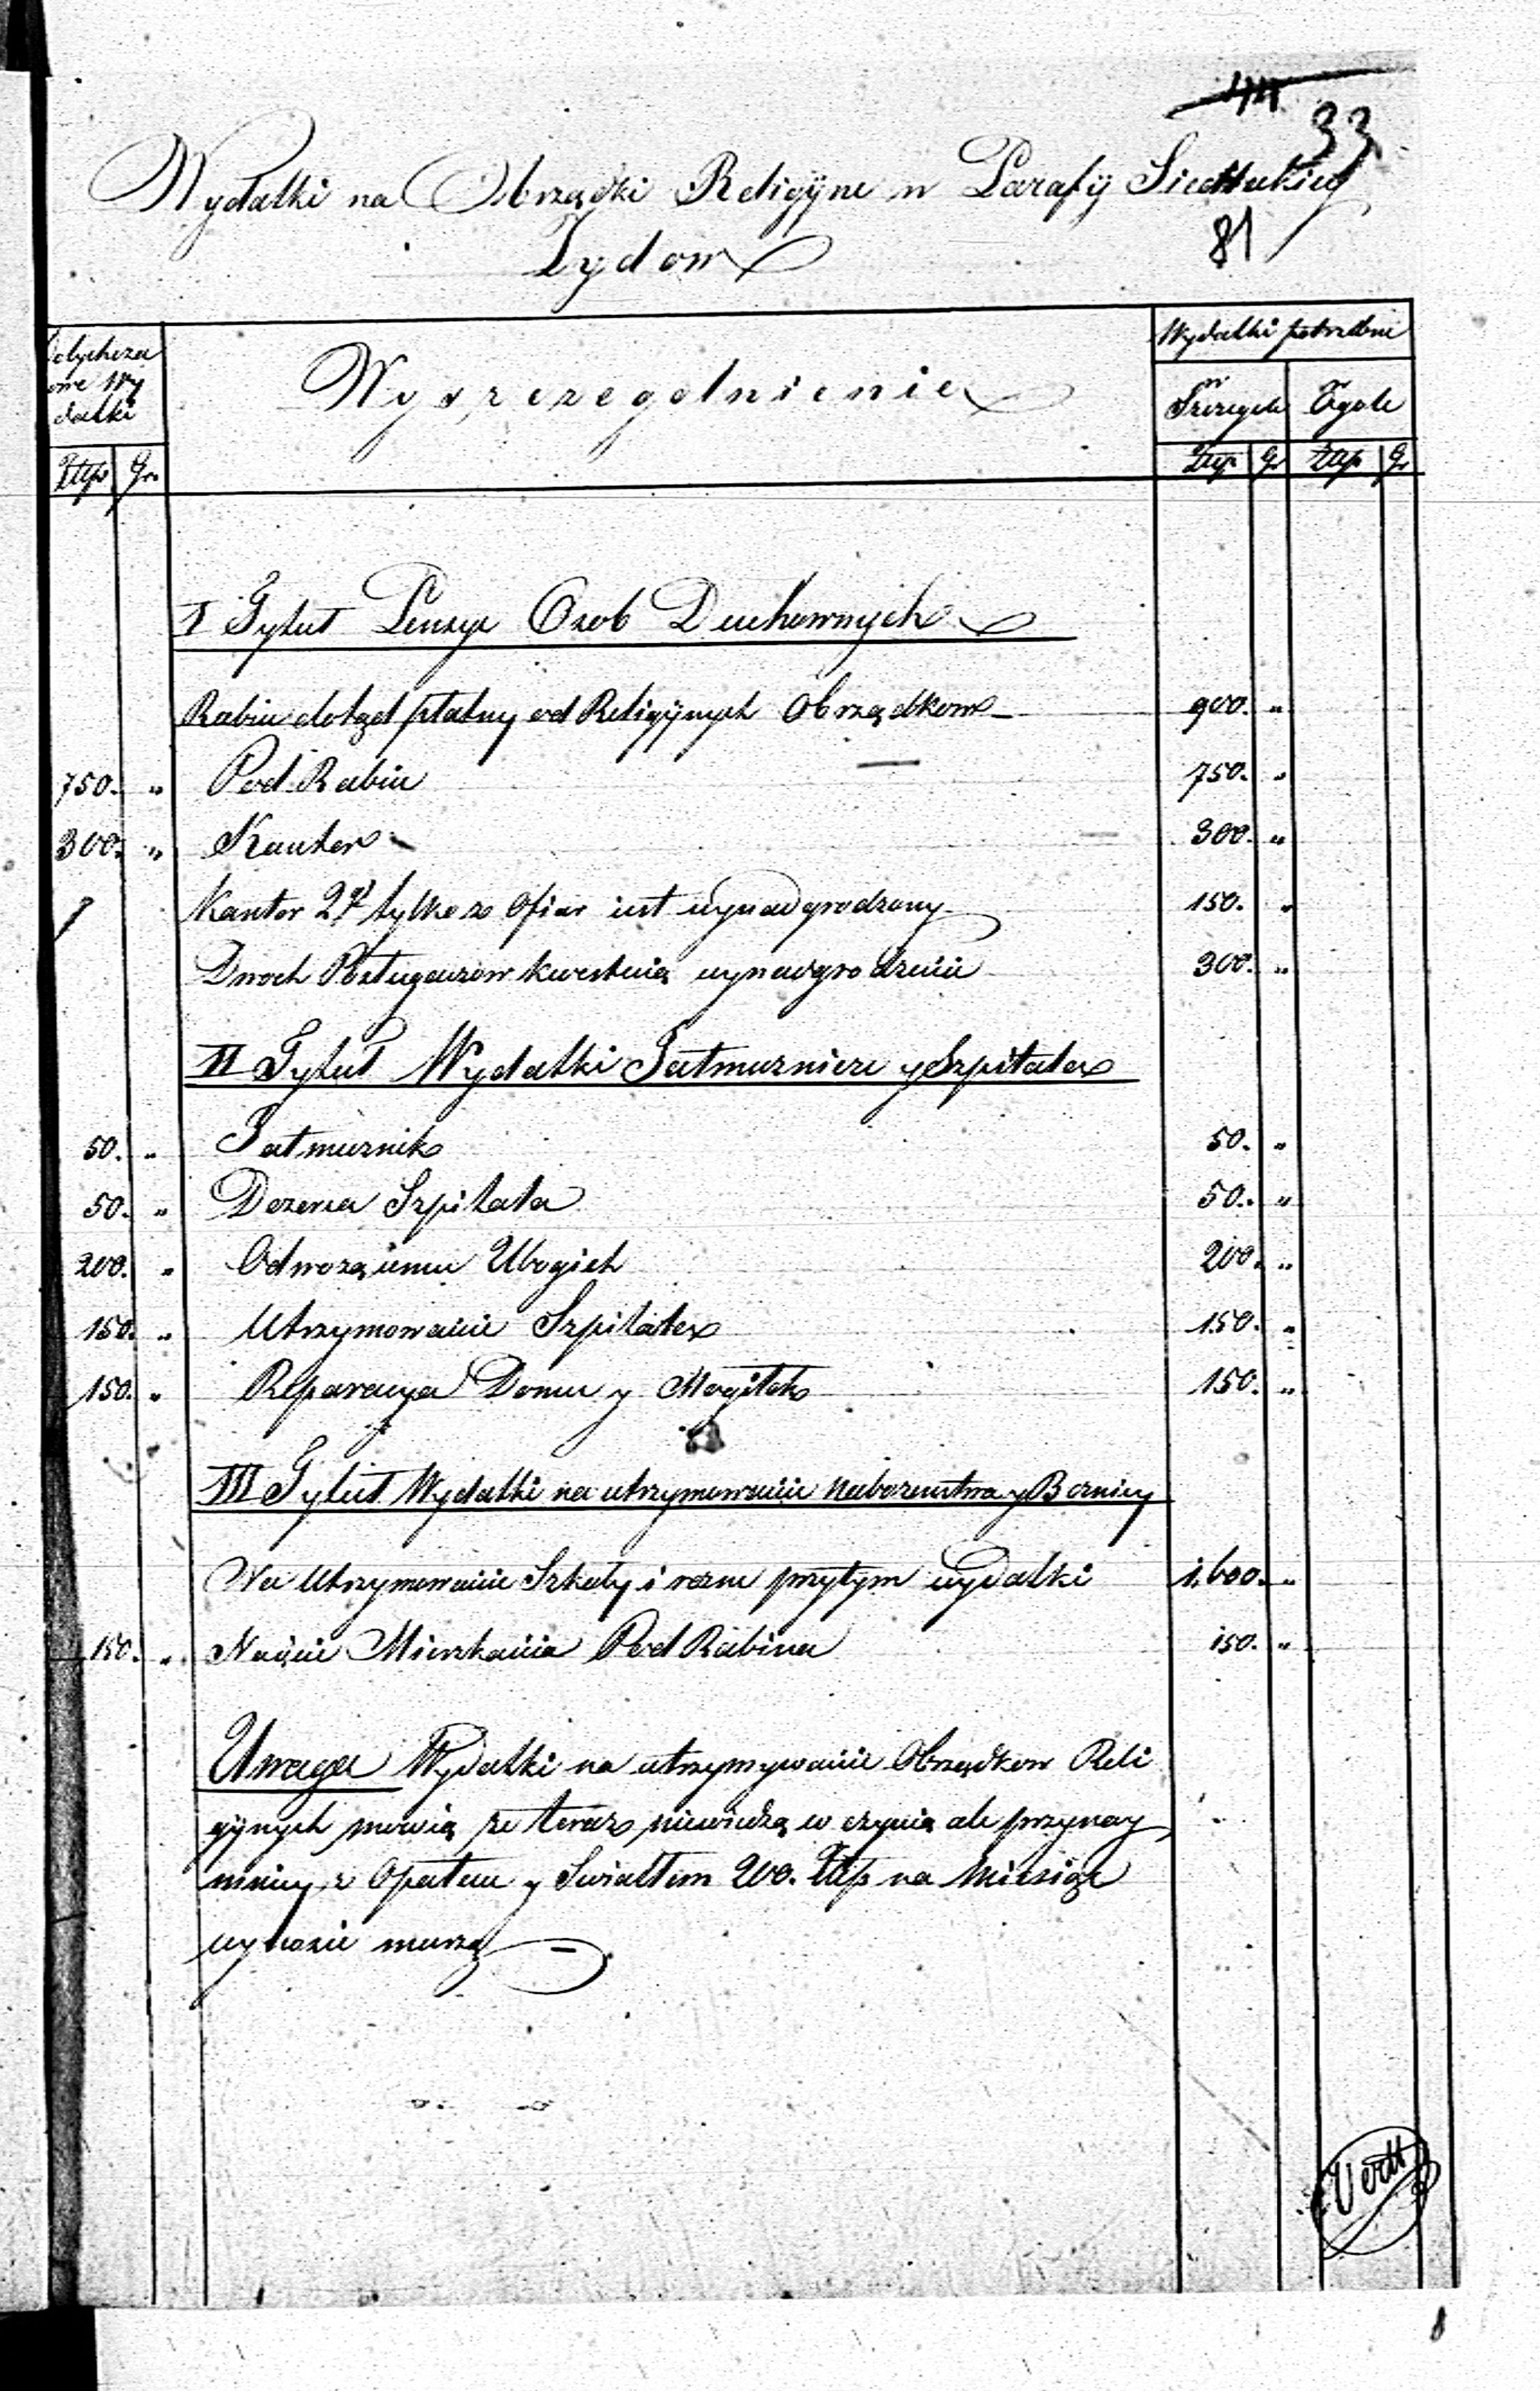 33
Wydatki na Obrządki Religÿne w Parafÿ Siedleckiey
81
Zydow
Dotychcza
sowe Wy
datki
Wyszczegolnienie
Wydatki potrzebne
w
Szczegole
Ogole
Złtp Gr.
Złtp Gr Złtp Gr
I Tytuł Pensye Osob Duchownych
Rabin dotąd płatny od Religÿnych Obrządkow 900. "
750. " Pod Rabin 750. "
300. " Kantor 300. "
Kantor 2gi tylko z Ofiar iest wynadgrodzony 150. "
Dwoch Posługaczow kwestuią wynadgrodzenie 300. "
II Tytuł Wydatki Jałmuznicze y Szpitala
50. " Jałmuznik 50. "
50. " Dozorca Szpitala 50. "
200. " Odwozącemu Ubogich 200. "
150. " Utrzymowanie Szpitala 150. "
150. " Reparacya Domu y Mogiłek 150. "
III Tytuł Wydatki na utrzymowanie Nabozenstwa y Boznicy
Na Utrzymowanie Szkoły i rozne przytym wydatki 1,600. "
150. " Naięcie Mieszkania Pod Rabina 150. "
Uwaga Wydatki na utrzymywanie Obrządkow Reli
gÿnych mowią ze teraz niewiedzą w czynią ale przynay
mniey z Opałem y Swiatłem 200. Złtp na Miesiąc
wynosić muszą